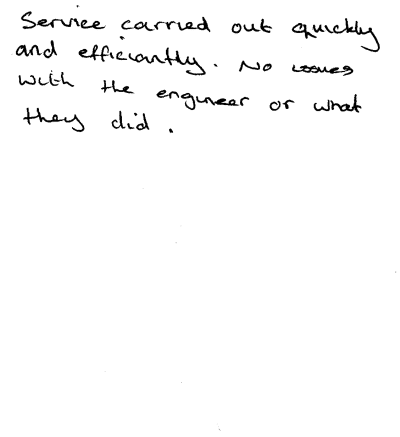 Service carried out quickly
and efficiantly. No issues
with the engineer or what
they did.